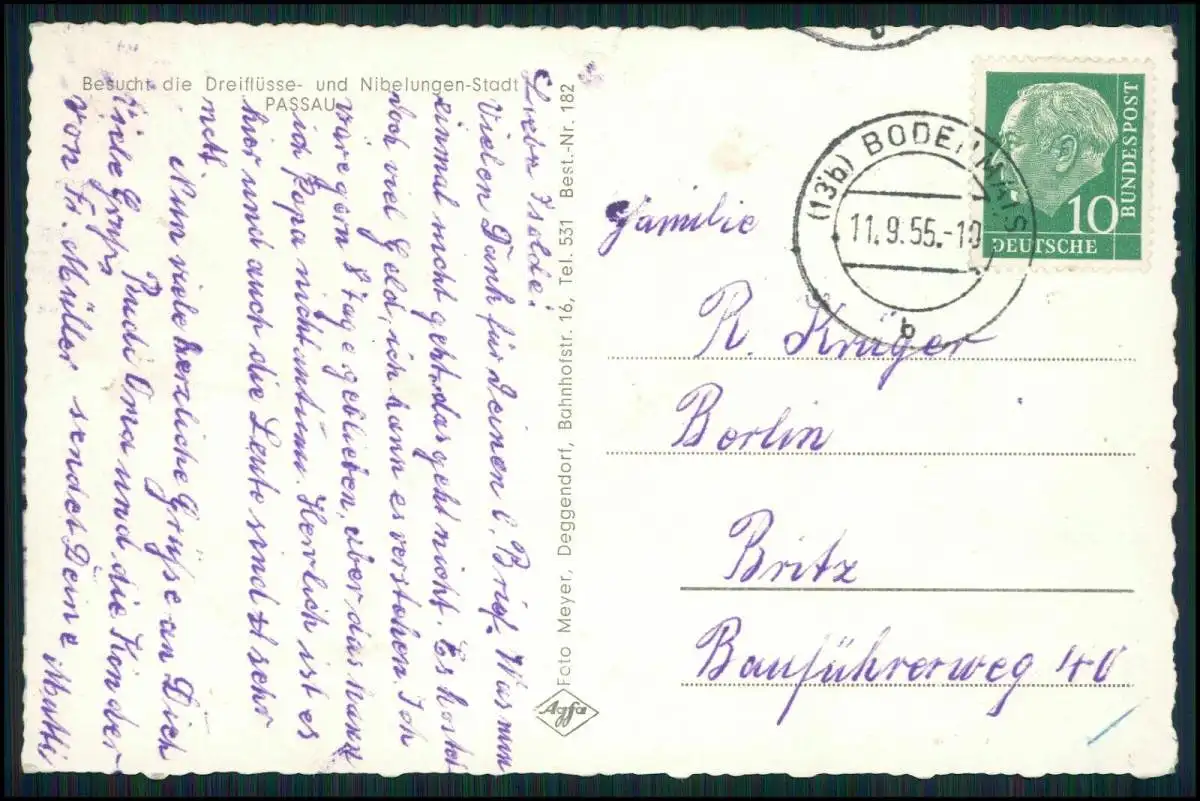 Besucht die Dreiflüsse- und Nibelungen-Stadt
PASSAU
Liebe Isolde!
Vielen Dank für Deinen l. Brief. Was nun
einmal nicht geht, das geht nicht. Es kostet
doch viel Geld, ich kann es verstehen. Ich
wäre gern 8 Tage geblieben, aber das kann
ich Papa nicht antun. Herrlich ist es
hier und auch die Leute sind sehr
nett.
Nun viele herzliche Grüße an Dich
Rudi Oma und die Kinder
Viele Grüße
von Fr. Müller sendet Deine Mutti
Foto Meyer, Deggendorf, Bahnhofstr. 16, Tel. 531 Best.-Nr. 182
Agfa
(13b) BODENMAIS
11.9.55.-10
b
DEUTSCHE
BUNDESPOST
10
Familie
R. Krüger
Berlin
Britz
Bauführerweg 40